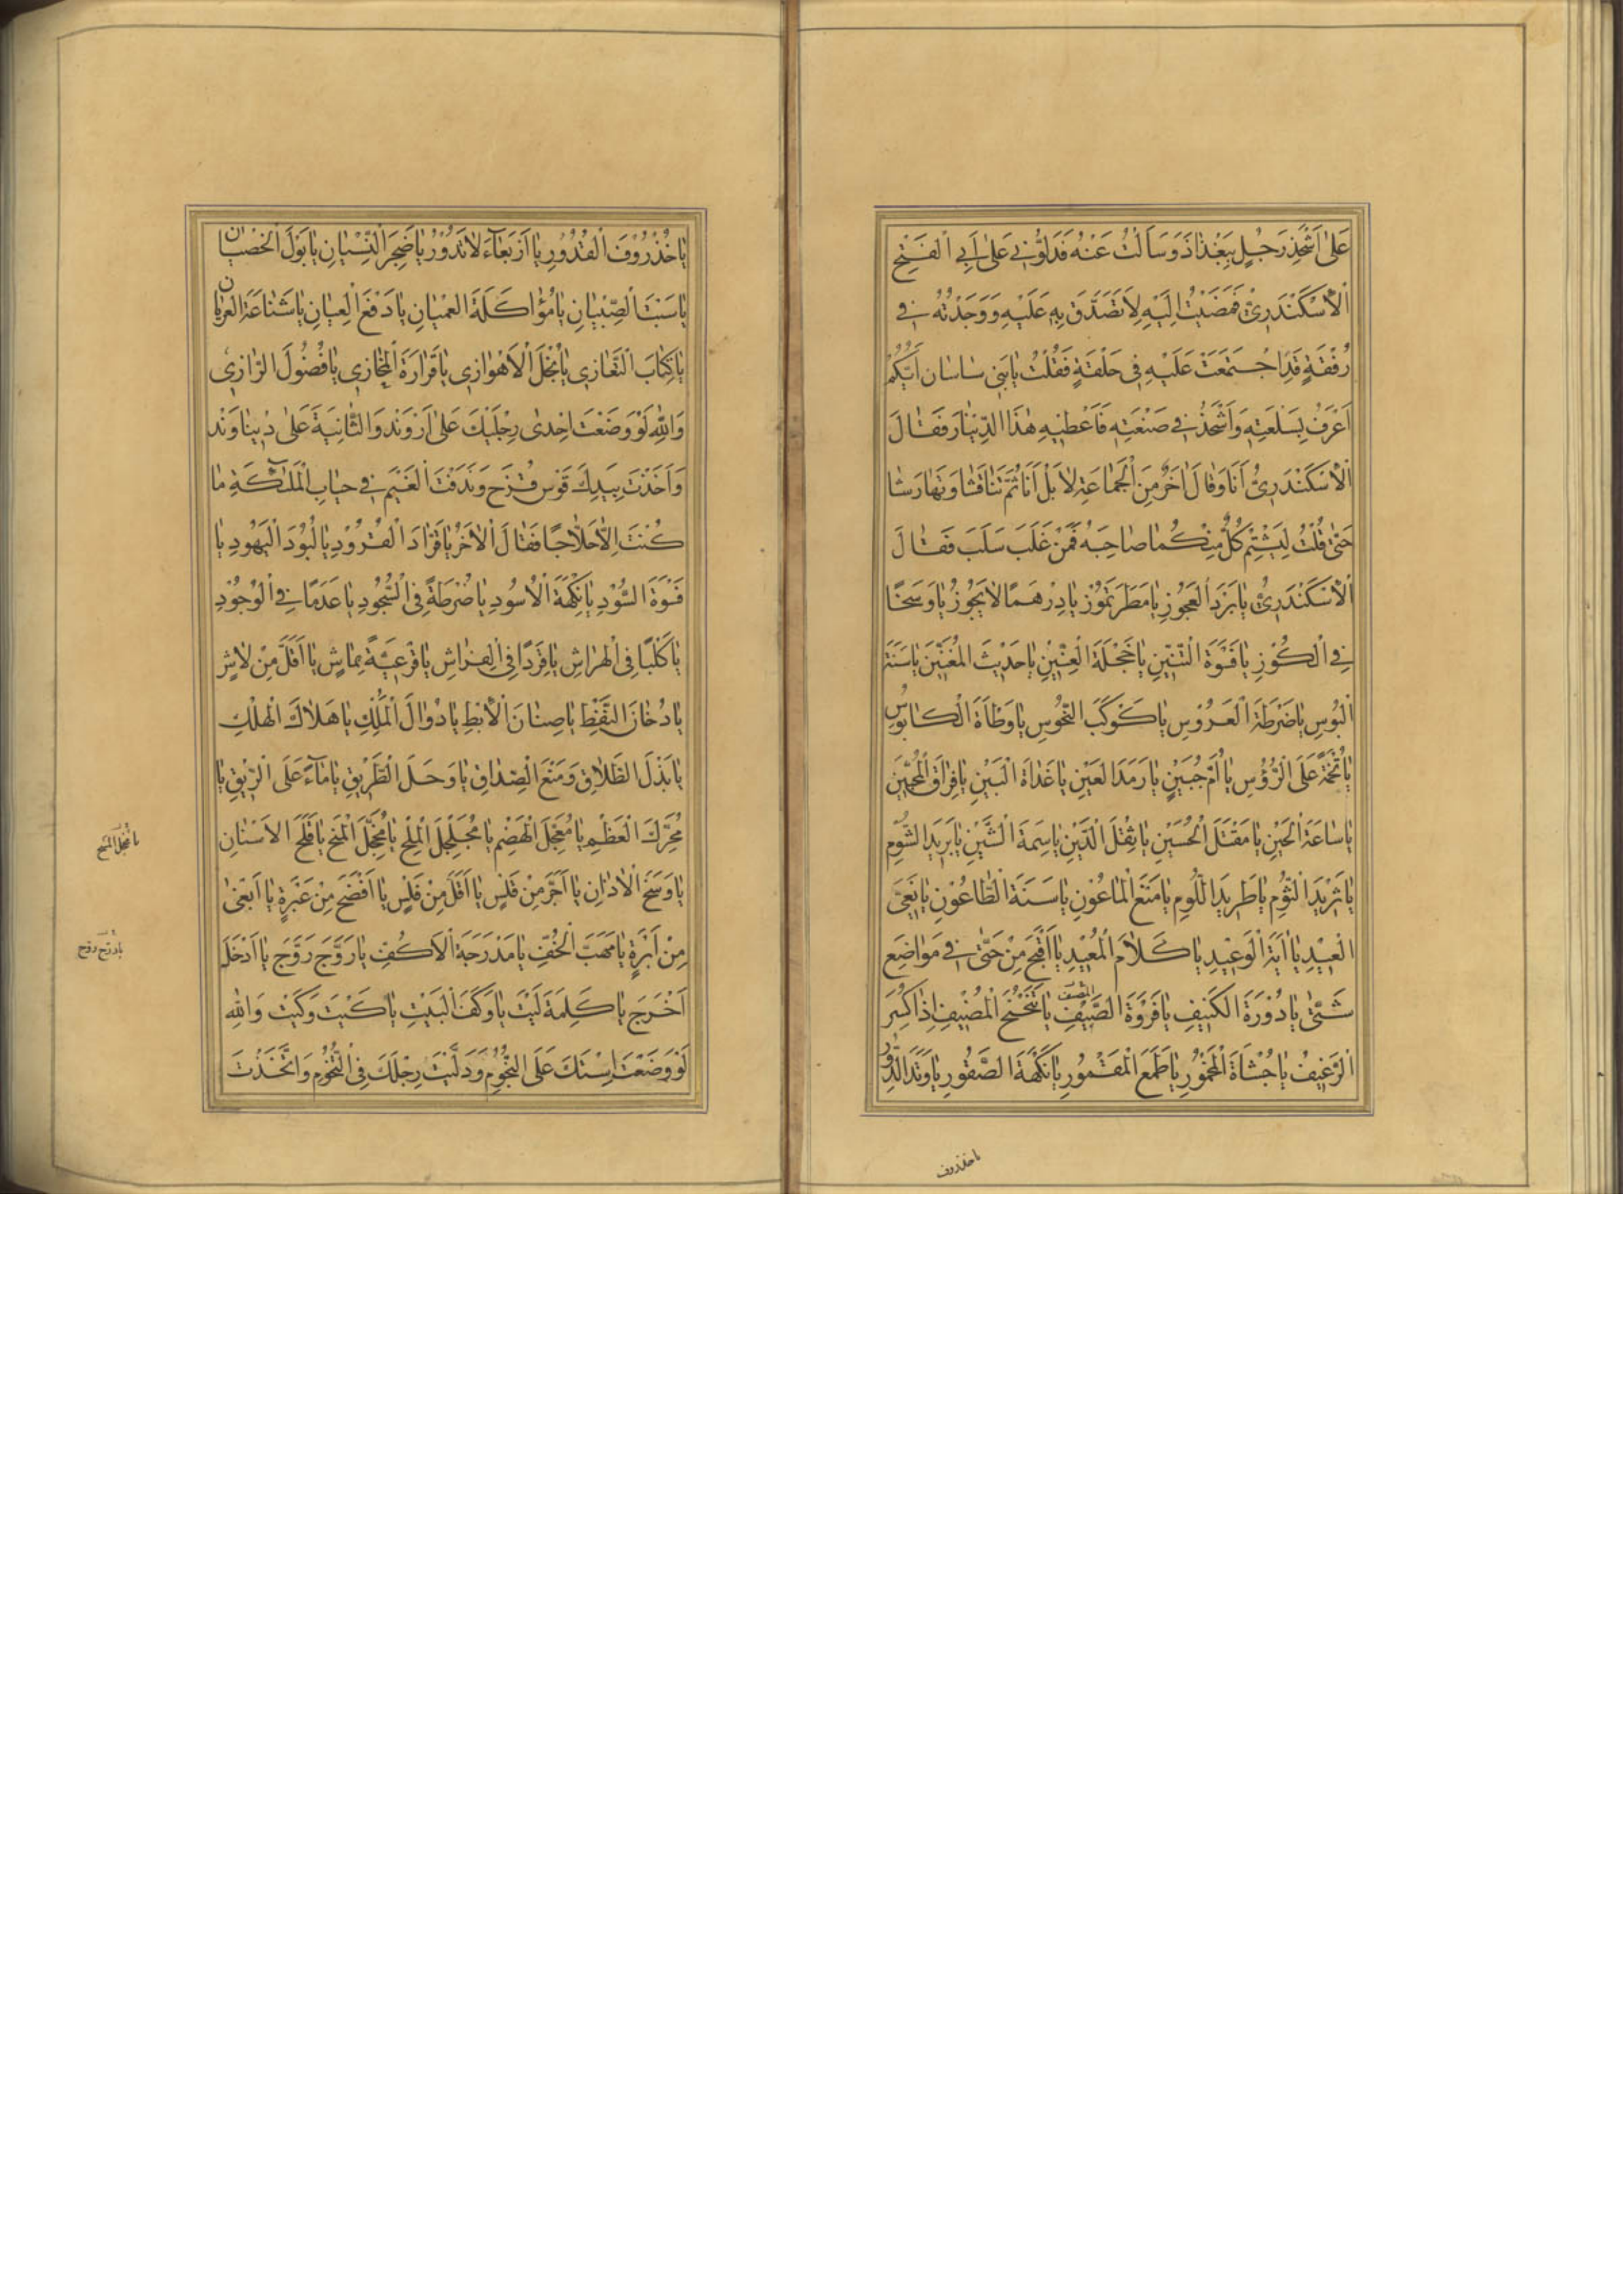 عَلٰى اَشْحَذِ رَجُلٍ بِبَغْدَاذَ وَسَاَلْتُ عَنْهُ فَدَلُّوْنِى عَلٰى اَبِى الْفَتْحِ
الْاِسْكَنْدَرِىِّ فَمَضَيْتُ اِلَيْهِ لِاَتَصَدَّقَ بِهِ عَلَيْهِ وَوَجَدْتُهُ فِى
رُفْقَةٍ قَدِ اجْتَمَعَتْ عَلَيْهِ فِى حَلْقَةٍ فَقُلْتُ يَا بَنِى سَاسَان اَيُّكُمْ
اَعْرَفُ بِسِلْعَتِهِ وَاَشْحَذُ فِى صَنْعَتِهِ فَاُعْطِيَهِ هٰذَا الدِّيْنَارَ فَقَالَ
الْاِسْكَنْدَرِىُّ اَنَا وَقَالَ اٰخَرُ مِنَ الْجَمَاعَةِ لَا بَلْ اَنَا ثُمَّ تَنَاقَشَا وَتَهَارَشَا
حَتّٰى قُلْتُ لِيَشْتِمْ كُلٌّ مِنْكُمَا صَاحِبَهُ فَمَنْ غَلَبَ سَلَبَ فَقَالَ
الْاِسْكَنْدَرِىُّ يَا بَرْدَ الْعَجُوْزِ يَا مَطَرَ تَمُّوْز يَا دِرْهَمًا لَا يَجُوْزُ يَا وَسَخًا
فِى الْكُوْزِ يَا فَسْوَةَ التِّنِّيْنِ يَا خَجْلَةَ الْعِنِّيْنِ يَا حَدِيْثَ الْمُغَنِّيْنَ يَا سَنَةَ
الْبُوْسِ يَا ضَرْطَةَ الْعَرُوْسِ يَا كَوْكَبَ النُّحُوْسِ يَا وَطْاَةَ الْكَابُوْسِ
يَا تُخْمَةً عَلَى الرُّؤُسِ يَا اُمَّ حُبَيْنٍ يَا رَمَدَ الْعَيْنِ يَا غَدَاةَ الْبَيْنِ يَا فِرَاقَ الْمُحِبِّيْنَ
يَا سَاعَةَ الْحَيْنِ يَا مَقْتَلَ الْحُسَيْنِ يَا ثِقْلَ الدَّيْنِ يَا سِمَةَ الشَّيْنِ يَا بَرِيْدَ الشُّوْمِ
يَا ثَرِيْدَ الثُّوْمِ يَا طَرِيْدَ اللُّوْمِ يَا مَنْعَ الْمَاعُوْنِ يَا سَنَةَ الطَّاعُوْنِ يَا بَغْىَ
الْعَبِيْدِ يَا اٰيَةَ الْوَعِيْدِ يَا كَلَامَ الْمُعِيْدِ يَا اَقْبَحَ مِنْ حَتّٰى فِى مَوَاضِعِ
شَتّٰى يَا دُوْدَةَ الْكَنِيْفِ يَا فَرْوَةَ الصَّيْفِ يَا تَنَحْنُحَ الْمُضِيْفِ اِذَا كُسِرَ
الرَّغِيْفُ يَا جُشَاَةَ الْمَخْمُوْرِ يَا طَمَعَ الْمَقْمُوْرِ يَا نَكْهَةَ الصَّقُوْرِ يَا وَتَدَ الدُّوْرِ
يا خذروف
يَا خُذْرُوْفَ الْقُدُوْرِ يَا اَرْبَعَاءَ لَا تَدُوْرُ يَا ضَجَرَ اللِّسَانِ يَا بَوْلَ الْخِصْيَانِ
يَا سَبْتَ الصِّبْيَانِ يَا مُؤَاكَلَةَ الْعُمْيَانِ يَا دَفْعَ الْعِيَانِ يَا شَنَاعَةَ الْعُرْيَانِ
يَا كِتَابَ التَّعَازِى يَا بُخْلَ الْاَهْوَازِى يَا قَرَارَةَ الْمَخَازِى يَا فُضُوْلَ الرَّازِى
وَاللهِ لَوْ وَضَعْتَ اِحْدٰى رِجْلَيْكَ عَلٰى اَرْوَنْدَ وَالثَّانِيَةَ عَلٰى دُبْنَاوَنْد
وَاَخَذْتَ بِيَدِكَ قَوْسَ قُزَحَ وَنَدَفْتَ الْغَيْمَ فِى جِبَابِ الْمَلٰئِكَةِ مَا
كُنْتَ اِلَّا حَلَّاجًا فَقَالَ الْاٰخَرُ يَا قَرَّادَ الْقُرُوْدِ يَا لُبُوْدَ الْيَهُوْدِ يَا
فَسْوَةَ السُّوْدِ يَا نَكْهَةَ الْاُسُوْدِ يَا ضَرْطَةً فِى السُّجُوْدِ يَا عَدَمًا فِى الْوُجُوْدِ
يَا كَلْبًا فِى الْهِرَاشِ يَا قِرْدًا فِى الْفِرَاشِ يَا قَرْعِيَّةً بِمَاشٍ يَا اَقَلَّ مِنْ لَاشٍ
يَا دُخَانَ النِّفْطِ يَا صُنَانَ الْاِبْطِ يَا زَوَالَ الْمُلْكِ يَا هَلَاكَ الْهُلْكِ
يَا بَذْلَ الطَّلَاقِ وَمَنْعَ الصِّدَاقِ يَا وَحَلَ الطَّرِيْقِ يَا مَاءً عَلَى الرِّيْقِ يَا
مُحَرِّكَ الْعَظْمِ يَا مُعَجِّلَ الْهَضْمِ يَا مُجَلْجِلَ الْمِلْحِ يَا مُخَجِّلَ الْمَنْحِ يَا قَلَحَ الْاَسْنَانِ
يَا وَسَخَ الْاٰذَانِ يَا اَجَرَّ مِنْ قَلْسٍ يَا اَقَلَّ مِنْ فَلْسٍ يَا اَفْضَحَ مِنْ عَبْرَةٍ يَا اَبْغٰى
مِنْ اِبْرَةٍ يَا مَهَبَّ الْخُفِّ يَا مَدْرَجَةَ الْاَكُفِّ يَا رَوَّجَ رَوَّجَ يَا اَدْخَلَ
اَخْرَجَ يَا كَلِمَةَ لَيْتَ يَا وَكَفَ الْبَيْتِ يَا كَيْتَ وَكَيْتَ وَاللهِ
لَوْ وَضَعْتَ اِسْتَكَ عَلَى النُّجُوْمِ وَدَلَّيْتَ رِجْلَكَ فِى التُّخُوْمِ وَاتَّخَذْتَ